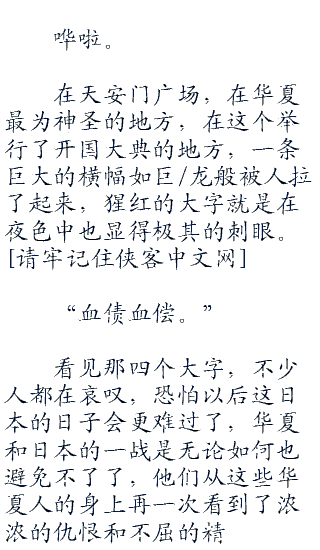 哗啦。
在天安门广场，在华夏
最为神圣的地方，在这个举
行了开国大典的地方，一条
巨大的横幅如巨/龙般被人拉
了起来，猩红的大字就是在
夜色中也显得极其的刺眼。
[请牢记住侠客中文网]
“血债血偿。”
看见那四个大字，不少
人都在哀叹，恐怕以后这日
本的日子会更难过了，华夏
和日本的一战是无论如何也
避免不了了，他们从这些华
夏人的身上再一次看到了浓
浓的仇恨和不屈的精